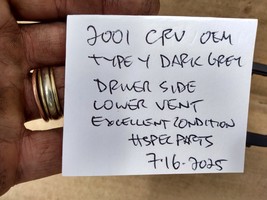 2001 CRV OEM
TYPE Y DARK GREY
DRIVER SIDE
LOWER VENT
EXCELLENT CONDITION
HSPEC PARTS
7-16-2025